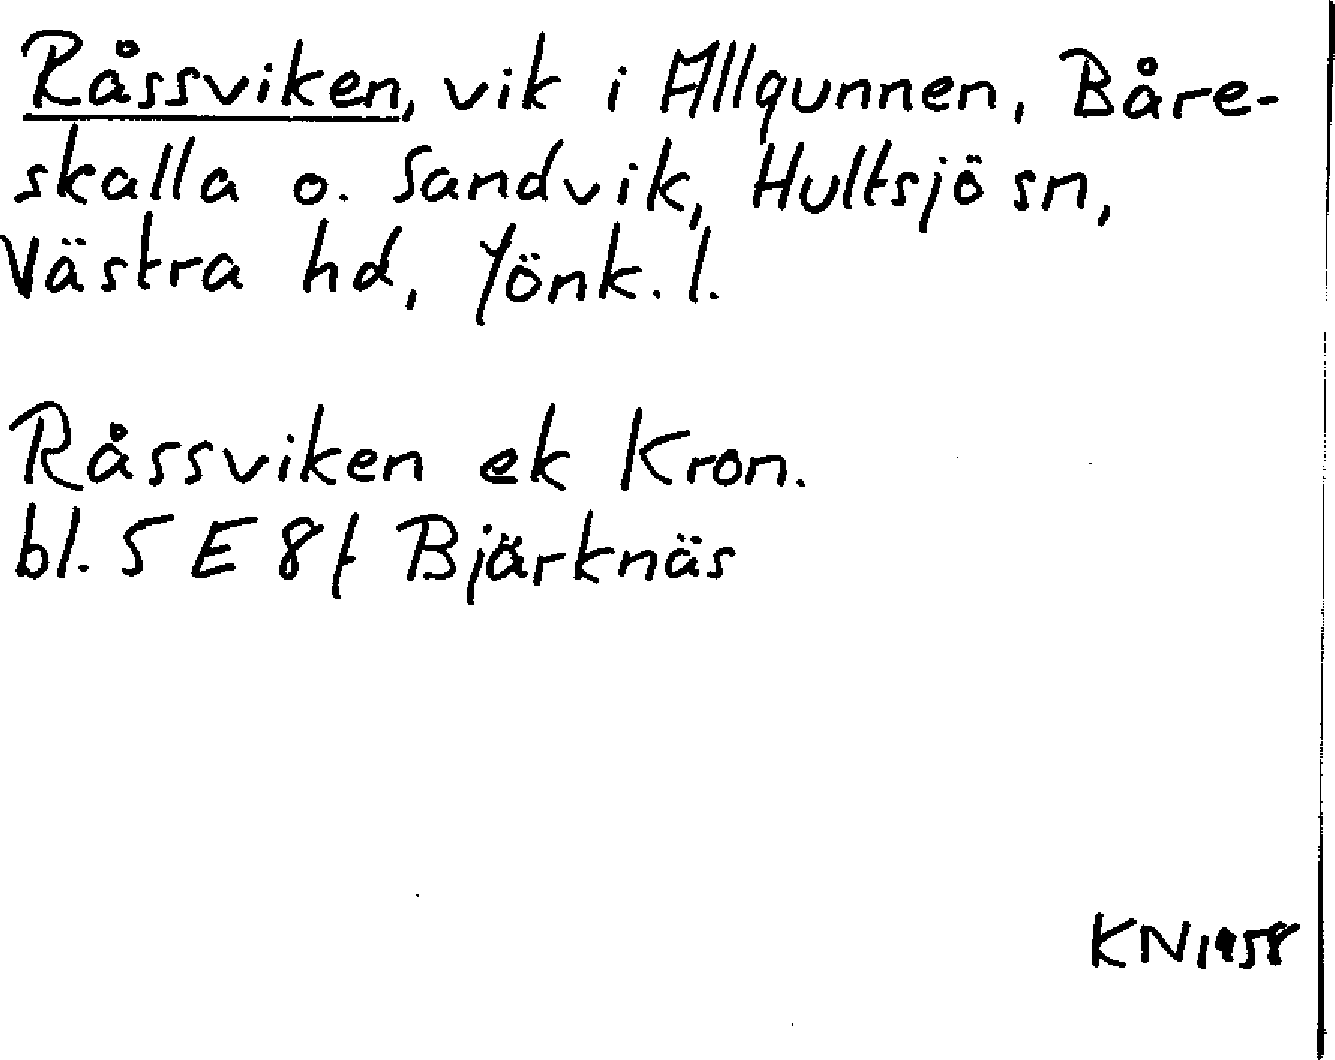 Råssviken, vik i Allgunnen, Båre-
skalla o. Sandvik, Hultsjö sn,
Västra hd, Jönk. l.
Råssviken ek Kron.
bl. 5 E 8 f Bjärknäs
KN 1958